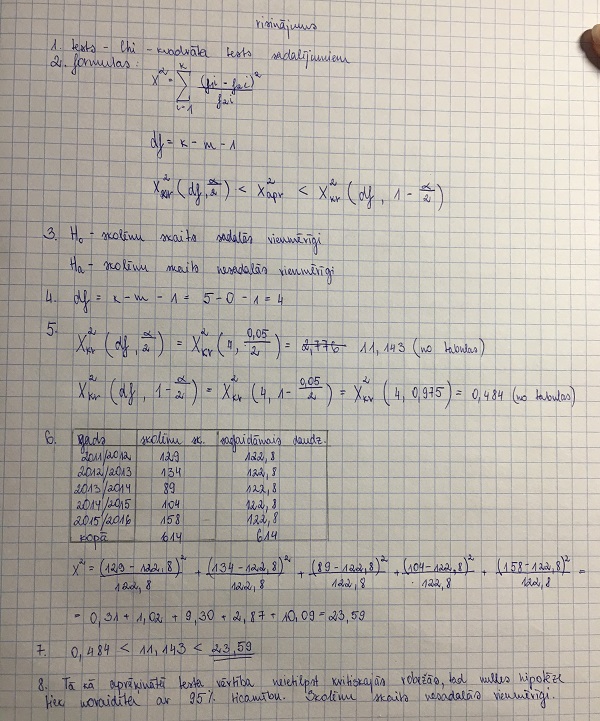 risinājums
1. tests - Chi - kvadrāta tests sadalījumiem
2. formulas:
X² = Σ (i=1, k) (f₁i - f₂i)² / f₂i
df = k - m - 1
X²kr (df, α/2) < X²apr < X²kr (df, 1 - α/2)
3. H₀ - skolēnu skaits sadalās vienmērīgi
Ha - skolēnu skaits nesadalās vienmērīgi
4. df = k - m - 1 = 5 - 0 - 1 = 4
5. X²kr (df, α/2) = X²kr (4, 0,05/2) = 2,776 11,143 (no tabulas)
X²kr (df, 1 - α/2) = X²kr (4, 1 - 0,05/2) = X²kr (4, 0,975) = 0,484 (no tabulas)
6. gads skolēnu sk. sagaidāmais daudz.
2011/2012 129 122,8
2012/2013 134 122,8
2013/2014 89 122,8
2014/2015 104 122,8
2015/2016 158 122,8
kopā 614 614
X² = (129-122,8)²/122,8 + (134-122,8)²/122,8 + (89-122,8)²/122,8 + (104-122,8)²/122,8 + (158-122,8)²/122,8 =
= 0,31 + 1,02 + 9,30 + 2,87 + 10,09 = 23,59
7. 0,484 < 11,143 < 23,59
8. Tā kā aprēķinātā testa vērtība neietilpst kritiskajās robežās, tad nulles hipotēze
tiek noraidīta ar 95% ticamību. Skolēnu skaits nesadalās vienmērīgi.